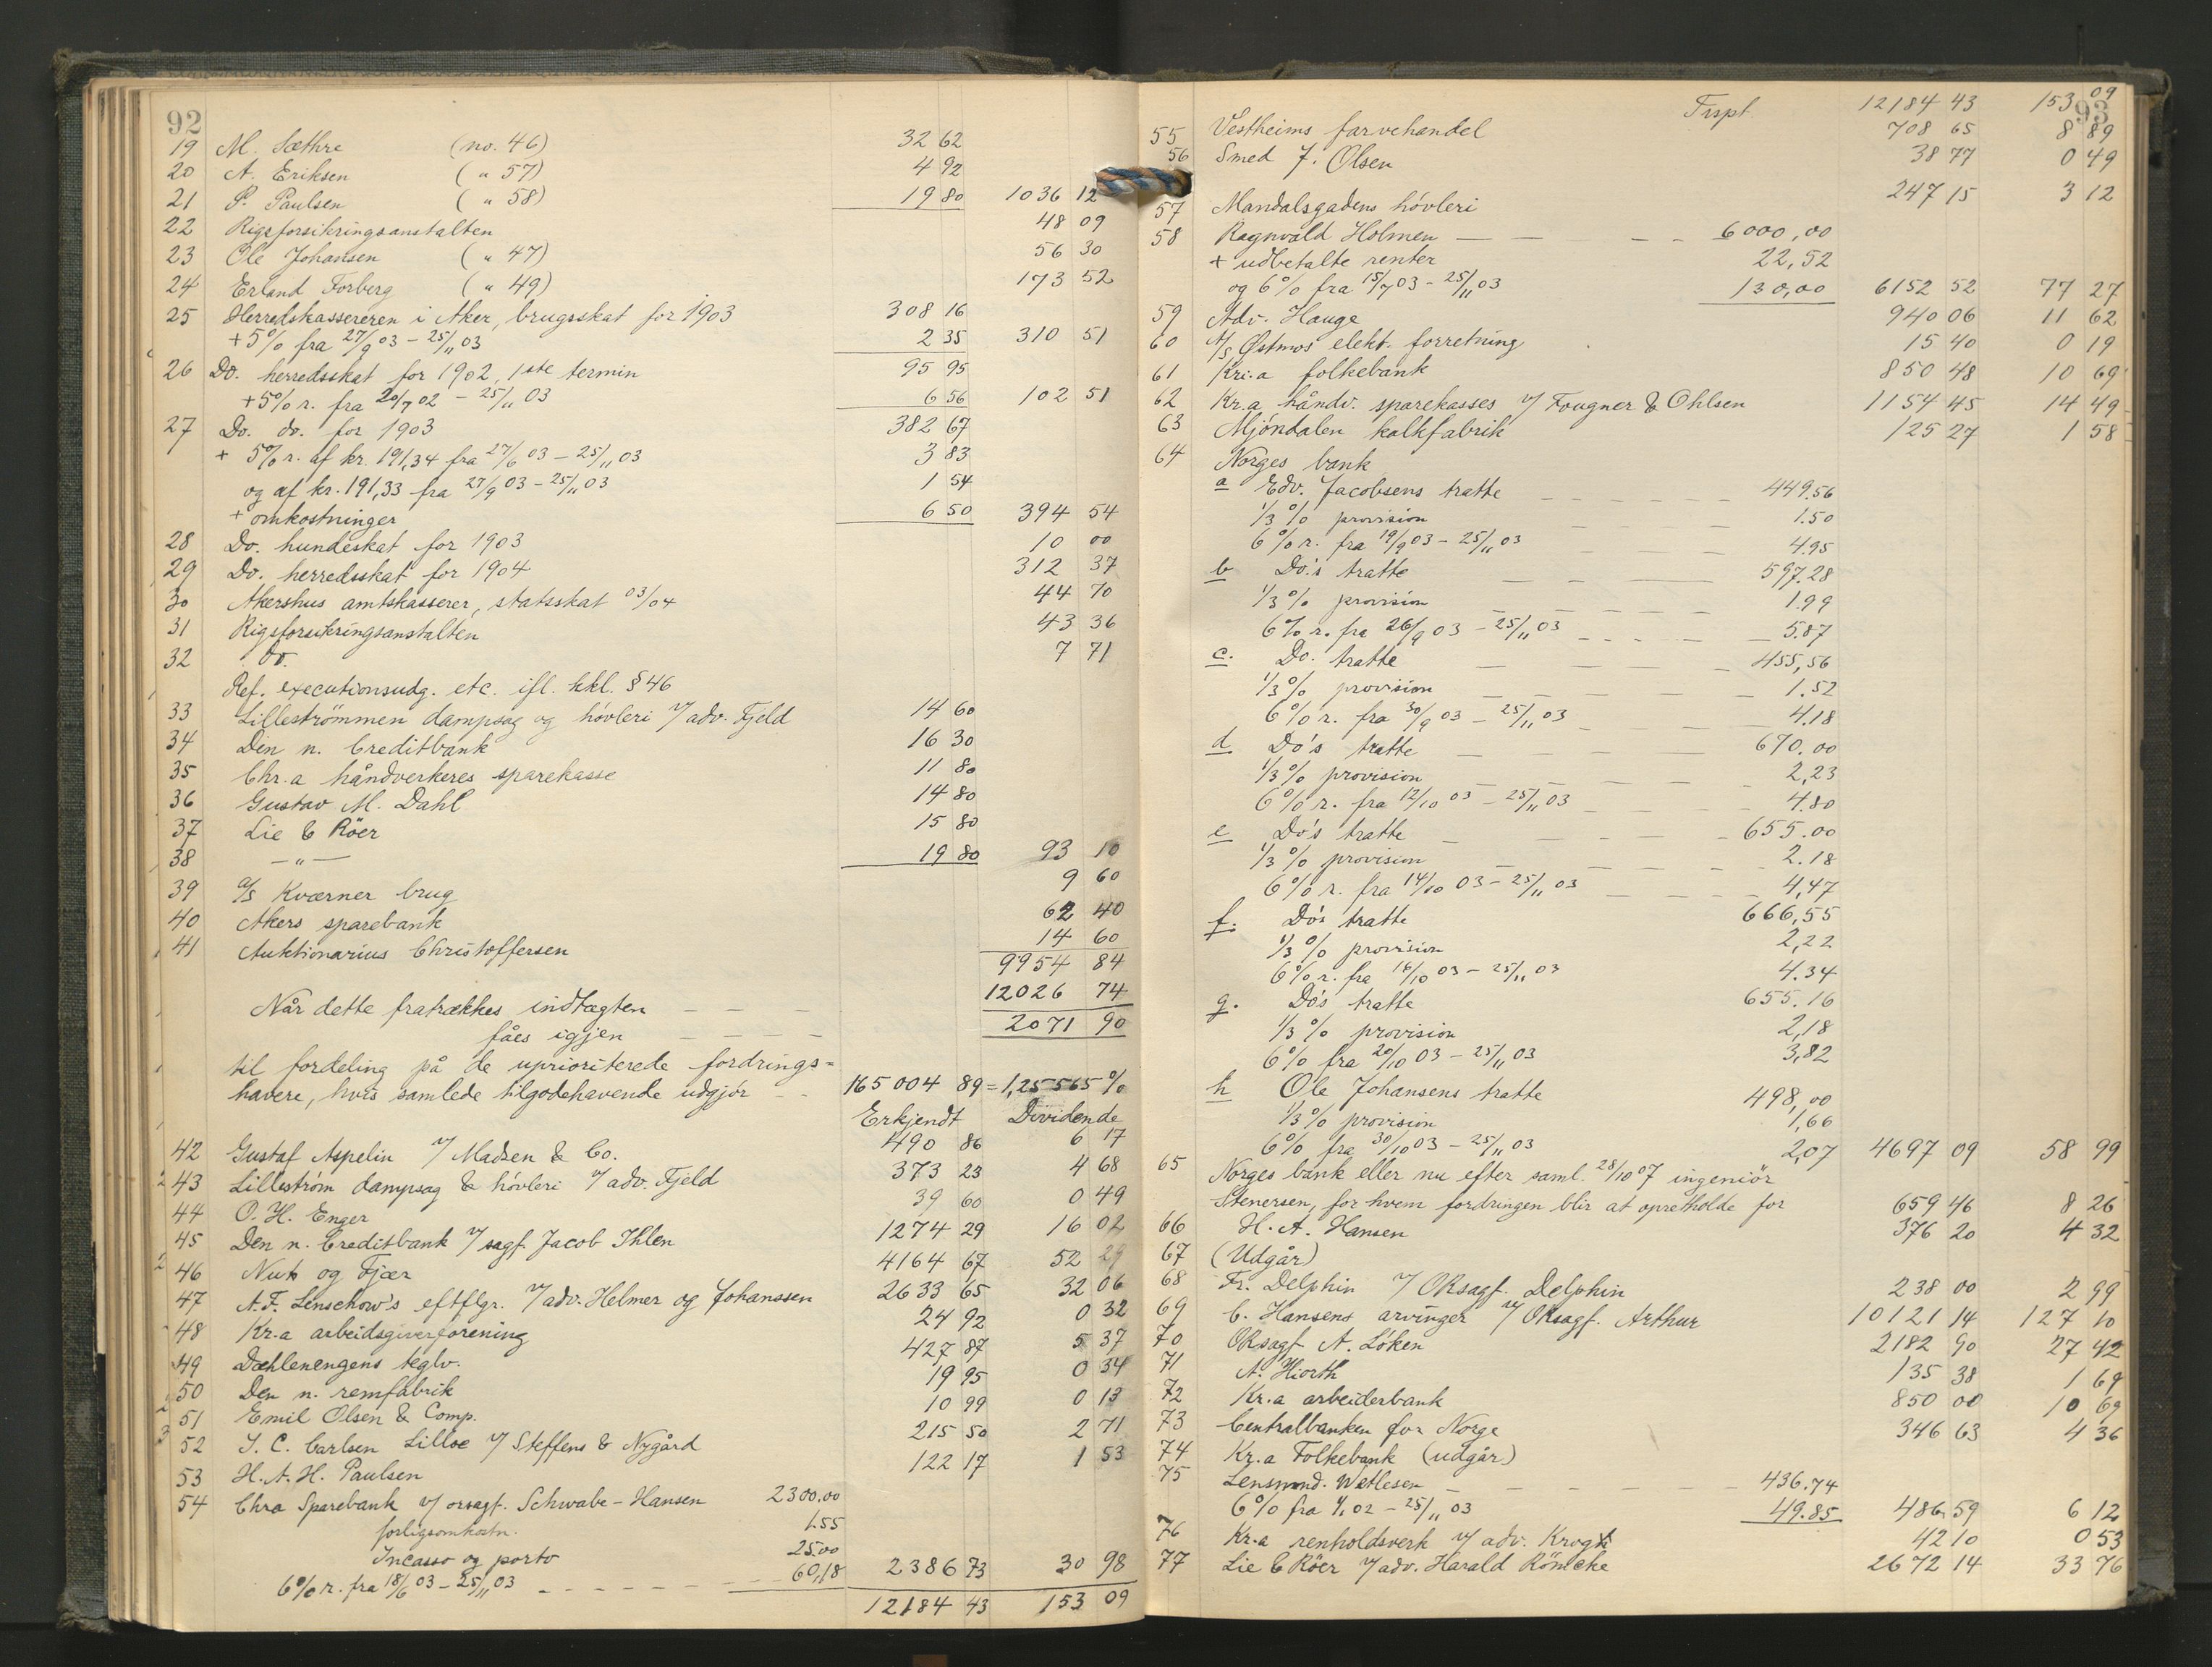 92
19 M. Sæthre (no. 46) 32 62
20 A. Eriksen ( " 57) 4 92
21 P. Paulsen ( " 58) 19 80 1036 12
22 Rigsforsikringsanstalten 48 09
23 Ole Johansen ( " 47) 56 30
24 Erland Forberg ( " 49) 173 52
25 Herredskassereren i Aker, brugsskat for 1903 308 16
+ 5% fra 27/9 03 - 25/11 03 2 35 310 51
26 Do. herredsskat for 1902, 1ste termin 95 95
+ 5% r. fra 20/7 02 - 25/11 03 6 56 102 51
27 Do. do. for 1903 382 67
+ 5% r. af kr. 191,34 fra 27/6 03 - 25/11 03 3 83
og af kr. 191,33 fra 27/9 03 - 25/11 03 1 54
+ omkostninger 6 50 394 54
28 Do. hundeskat for 1903 10 00
29 Do. herredsskat for 1904 312 37
30 Akershus amtskasserer, statsskat 03/04 44 70
31 Rigsforsikringsanstalten 43 36
32 do. 7 71
Ref. executionsudg. etc. ifl. kkl. § 46
33 Lilleströmmen dampsag og høvleri v/ adv. Fjeld 14 60
34 Den n. Creditbank 16 30
35 Chr.a håndverkeres sparekasse 11 80
36 Gustav M. Dahl 14 80
37 Lie & Röer 15 80
38 — " — 19 80 93 10
39 a/s Kværner brug 9 60
40 Akers sparebank 62 40
41 Auktionarius Christoffersen 14 60
9954 84
Når dette fratrækkes indtægten 12026 74
fåes igjen 2071 90
til fordeling på de uprioriterede fordrings=
havere, hvis samlede tilgodehavende udgjør 165004 89 = 1,25565 %
Erkjendt Dividende
42 Gustaf Aspelin v/ Madsen & Co. 490 86 6 17
43 Lillestrøm dampsag & høvleri v/ adv. Fjeld 373 23 4 68
44 O. H. Enger 39 60 0 49
45 Den n. Creditbank v/ sagf. Jacob Ihlen 1274 29 16 02
46 Nut og Fjær 4164 67 52 29
47 A. F. Lenschow's eftflgr. v/ adv. Helmer og Johanssen 2633 65 32 06
48 Kr.a arbeidsgiverforening 24 92 0 32
49 Dæhlenengens teglv. 427 87 5 37
50 Den n. remfabrik 19 95 0 34
51 Emil Olsen & Comp. 10 99 0 13
52 S. C. Carlsen Lilloe v/ Steffens & Nygård 215 50 2 71
53 H. A. H. Paulsen 122 17 1 53
54 Chra Sparebank v/ orsagf. Schwabe-Hansen 2300,00
forligsomkostn. 1.55
Incasso og porto 25.00
6% r. fra 18/6 03 - 25/11 03 60,18 2386 73 30 98
12184 43 153 09
93
Trspt 12184 43 153 09
55 Vestheims farvehandel 708 65 8 89
56 Smed J. Olsen 38 77 0 49
57 Mandalsgadens høvleri 247 15 3 12
58 Ragnvald Holmen — — 6000,00
+ udbetalte renter 22,52
og 6% fra 15/7 03 - 25/11 03 130,00 6152 52 77 27
59 Adv. Hauge 940 06 11 62
60 A/S Østmos elekt. forretning 15 40 0 19
61 Kri.a folkebank 850 48 10 69
62 Kr.a håndv. sparekasses v/ Fougner & Ohlsen 1154 45 14 49
63 Mjöndalen kalkfabrik 125 27 1 58
64 Norges bank
a Edv. Jacobsens tratte 449.56
1/3 % provision 1.50
6% r. fra 19/9 03 - 25/11 03 4.95
b Do.'s tratte 597.28
1/3 % provision 1.99
6% r. fra 26/9 03 - 25/11 03 5.87
c. Do. tratte 455,56
1/3 % provision 1.52
6% r. fra 30/9 03 - 25/11 03 4.18
d Do's tratte 670.00
1/3 % provision 2,23
6% r. fra 12/10 03 - 25/11 03 4.80
e Do's tratte 655.00
1/3 % provision 2.18
6% r. fra 14/10 03 - 25/11 03 4,47
f. Do's tratte 666,55
1/3 % provision 2,22
6% r. fra 16/10 03 - 25/11 03 4.34
g. Do's tratte 655.16
1/3 % provision 2,18
6% fra 20/10 03 - 25/11 03 3,82
h Ole Johansens tratte 498,00
1/3 % provision 1,66
6% fra 30/10 03 - 25/11 03 2,07 4697 09 58 99
65 Norges bank eller nu efter saml. 28/10 07 ingeniör
Stenersen, for hvem fordringen blir at opretholde for 659 46 8 26
66 H. A. Hansen 376 20 4 32
67 (Udgår)
68 Fr. Delphin v/ OKsagf. Delphin 238 00 2 99
69 C. Hansens arvinger v/ OKsagf. Arthur 10121 14 127 10
70 OKsagf A. Löken 2182 90 27 42
71 A. Hiorth 135 38 1 69
72 Kr.a arbeiderbank 850 00 10 69
73 Centralbanken for Norge 346 63 4 36
74 Kr.a Folkebank (udgår)
75 Lensmnd. Wetlesen 436.74
6% fra 1/1 02 - 25/11 03 49.85 486 59 6 12
76 Kr.a renholdsverk v/ adv. Krogh 42 10 0 53
77 Lie & Röer v/ adv. Harald Römcke 2672 14 33 76